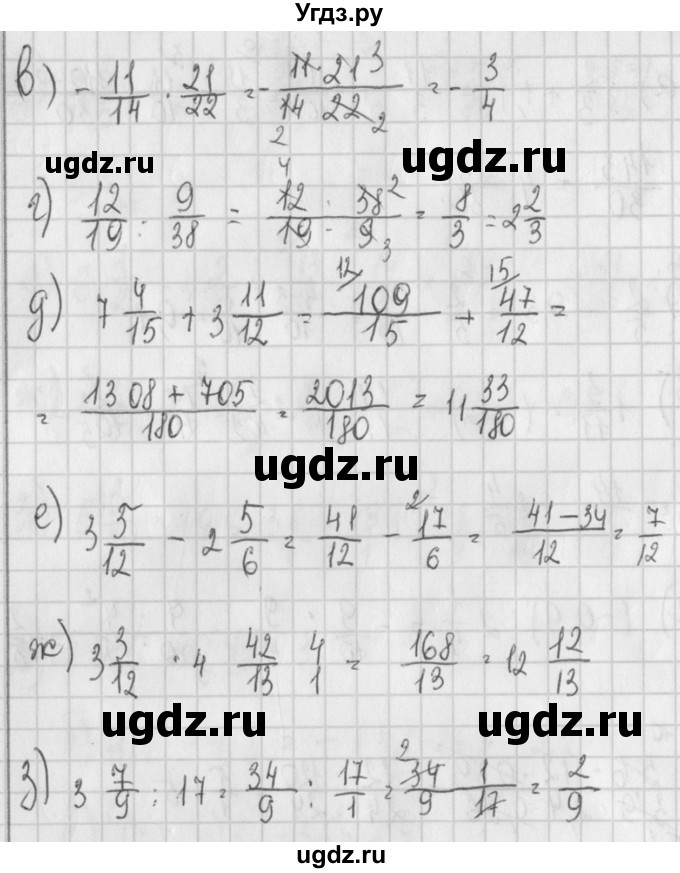 Угдз.ру
в) - 11/14 · 21/22 = - 11· 21 3 / 14 22 2 = - 3/4
2
ugdz.ru ugdz.ru
г) 12/19 : 9/38 = 4 12 · 38 2 / 19 · 9 3 = 8/3 = 2 2/3
д) 7 4/15 + 3 11/12 = 12/ 109/15 + 15/ 47/12 =
= 1308 + 705 / 180 = 2013/180 = 11 33/180
ugdz.ru
е) 3 5/12 - 2 5/6 = 41/12 - 2/ 17/6 = 41 - 34 / 12 = 7/12
ж) 3 3/12 · 4 42/13 4/1 = 168/13 = 12 12/13
ugdz.ru ugdz.ru
з) 3 7/9 : 17 = 34/9 : 17/1 = 2 34/9 1/17 = 2/9
ugdz.ru